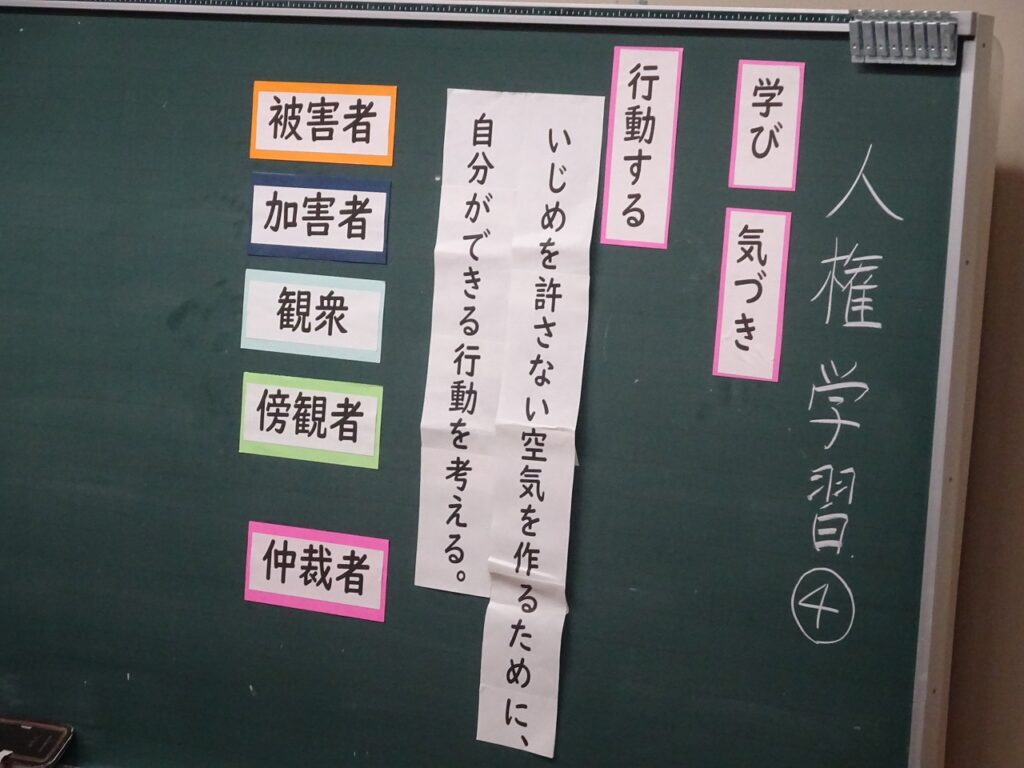 人権学習④
学び
気づき
行動する
いじめを許さない空気を作るために、
自分ができる行動を考える。
被害者
加害者
観衆
傍観者
仲裁者